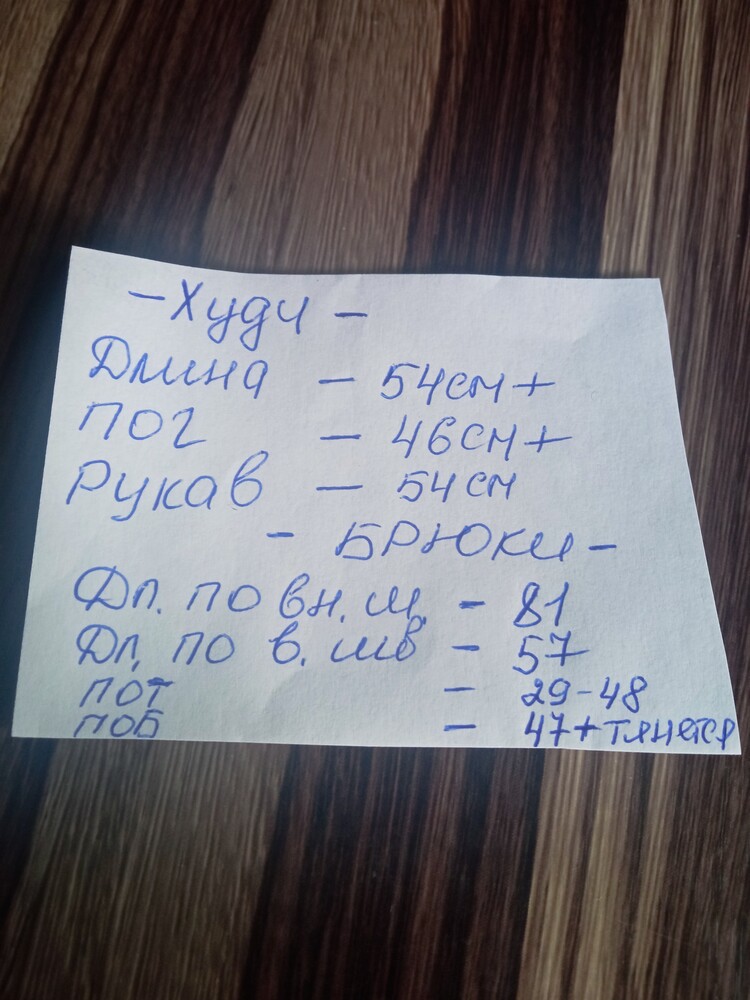 - Худи -
Длина - 54см+
ПОГ - 46см+
Рукав - 54см
- БРЮКИ -
Дл. по вн. ш. - 81
Дл. по в. шв - 57
ПОТ - 29-48
ПОБ - 47+тянется